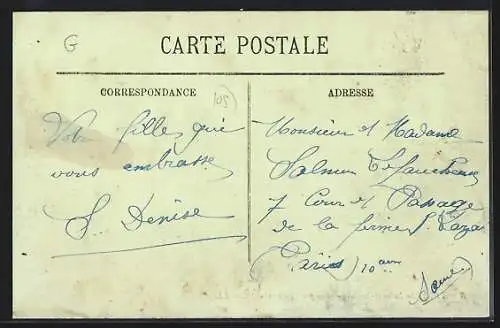 G
CARTE POSTALE
CORRESPONDANCE
105
Votre fille qui
vous embrasse
S. Denise
ADRESSE
Monsieur et Madame
Salmon
7 Cour et Passage
de la ferme St Lazare
Paris 10 em
Seine